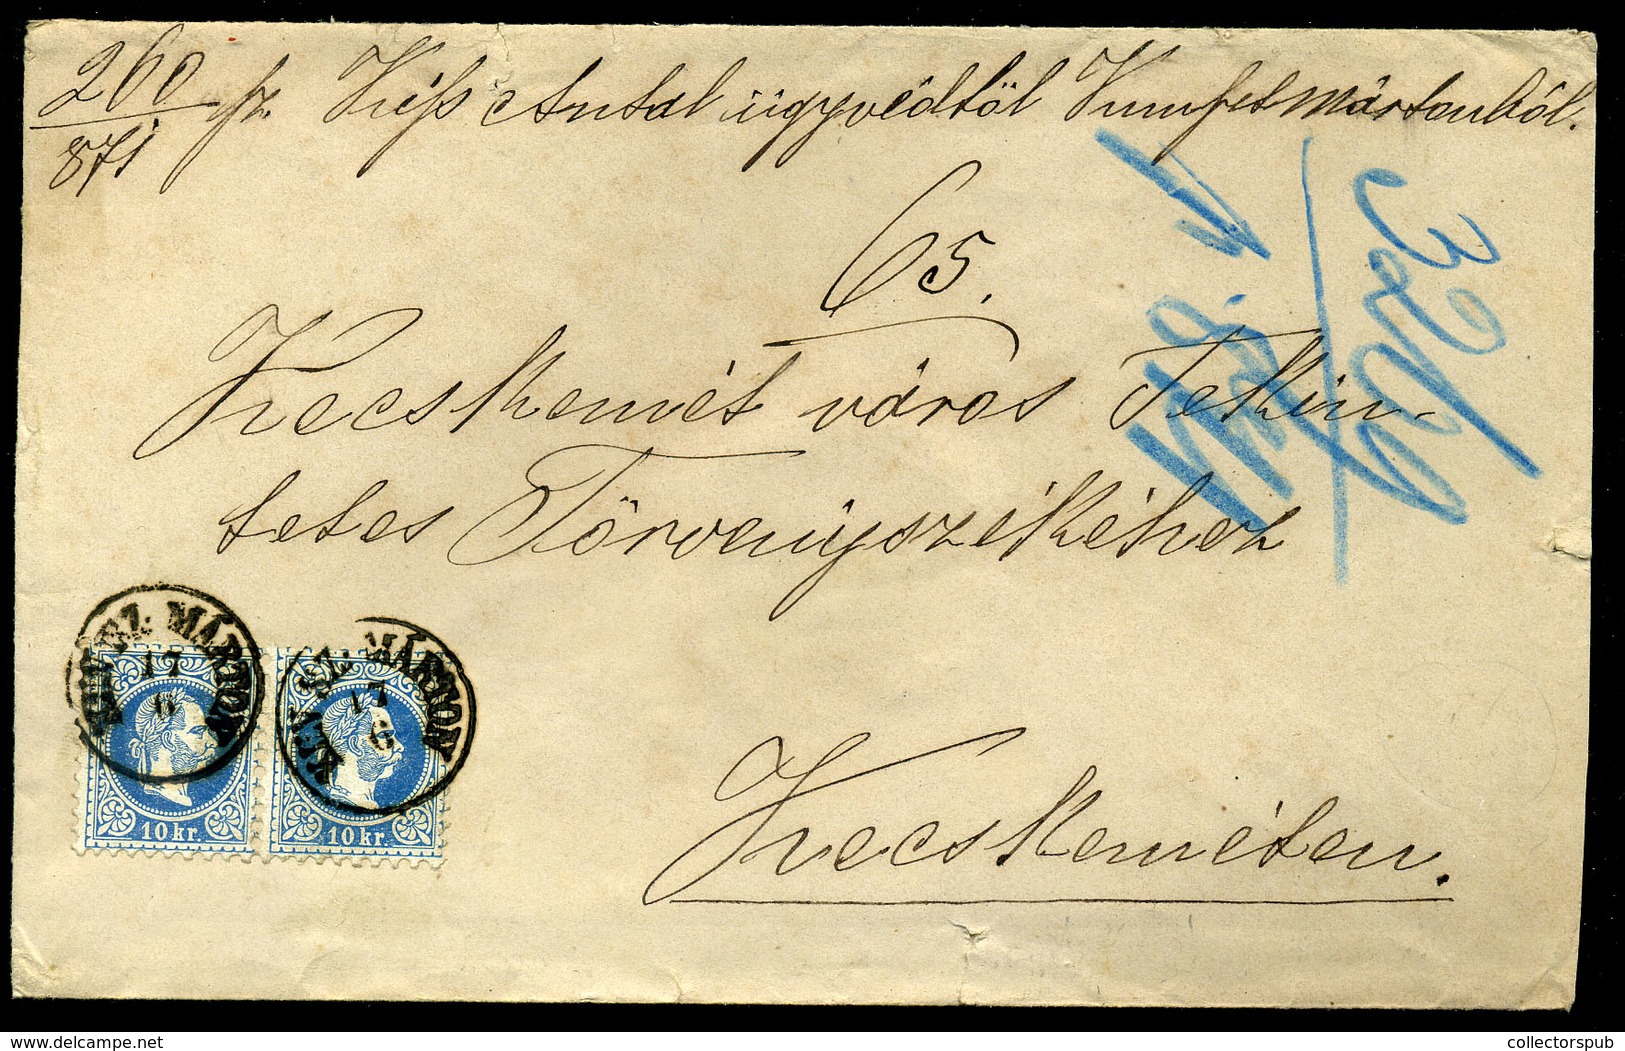 260 sz. Kiss Antal ügyvédtöl Kunszetmártonból.
871
65.
Kecskemét város Tekin-
tetes Törvényszékéhez
Kecskeméten.
KUN SZ: MÁRTON
17
6
KUN SZ: MÁRTON
17
6
10 kr.
10 kr.
collectorspub